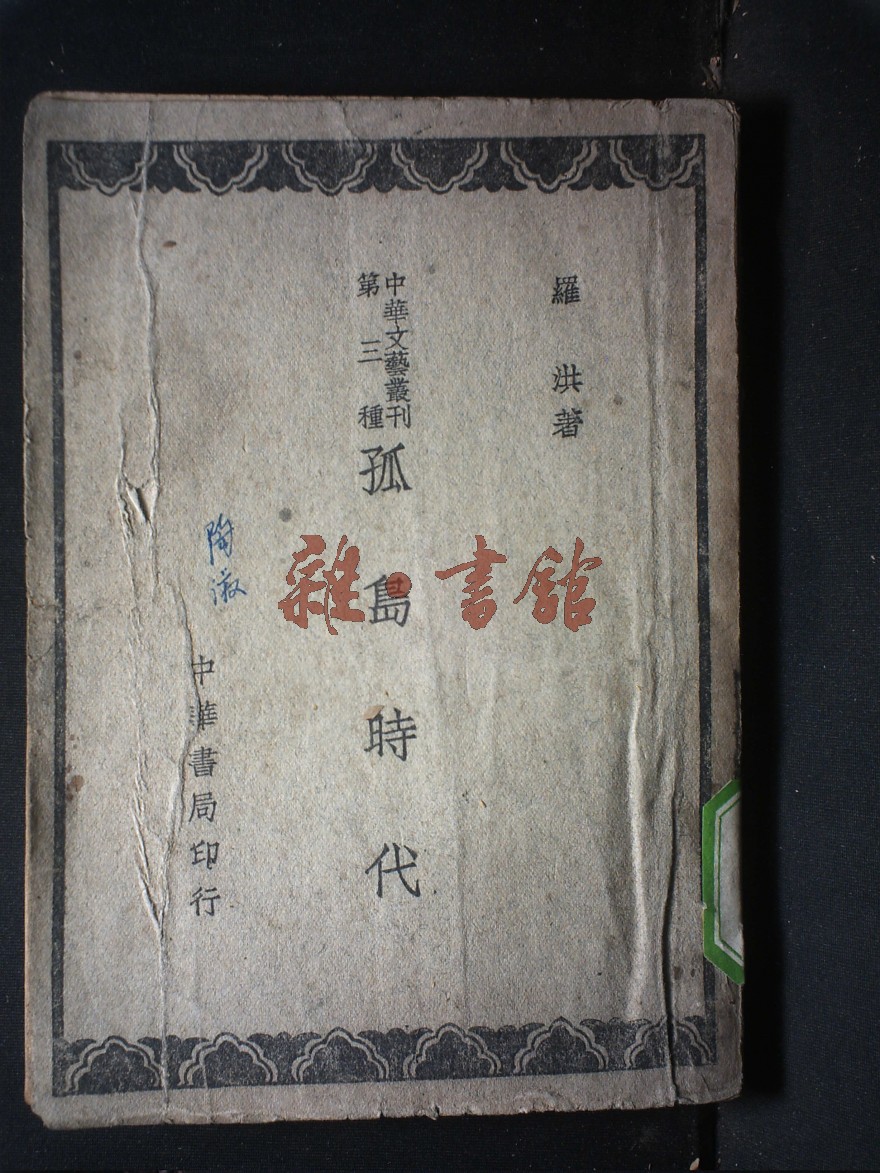 羅洪著
中華文藝叢刊
第三種
孤島時代
中華書局印行
雜·書館